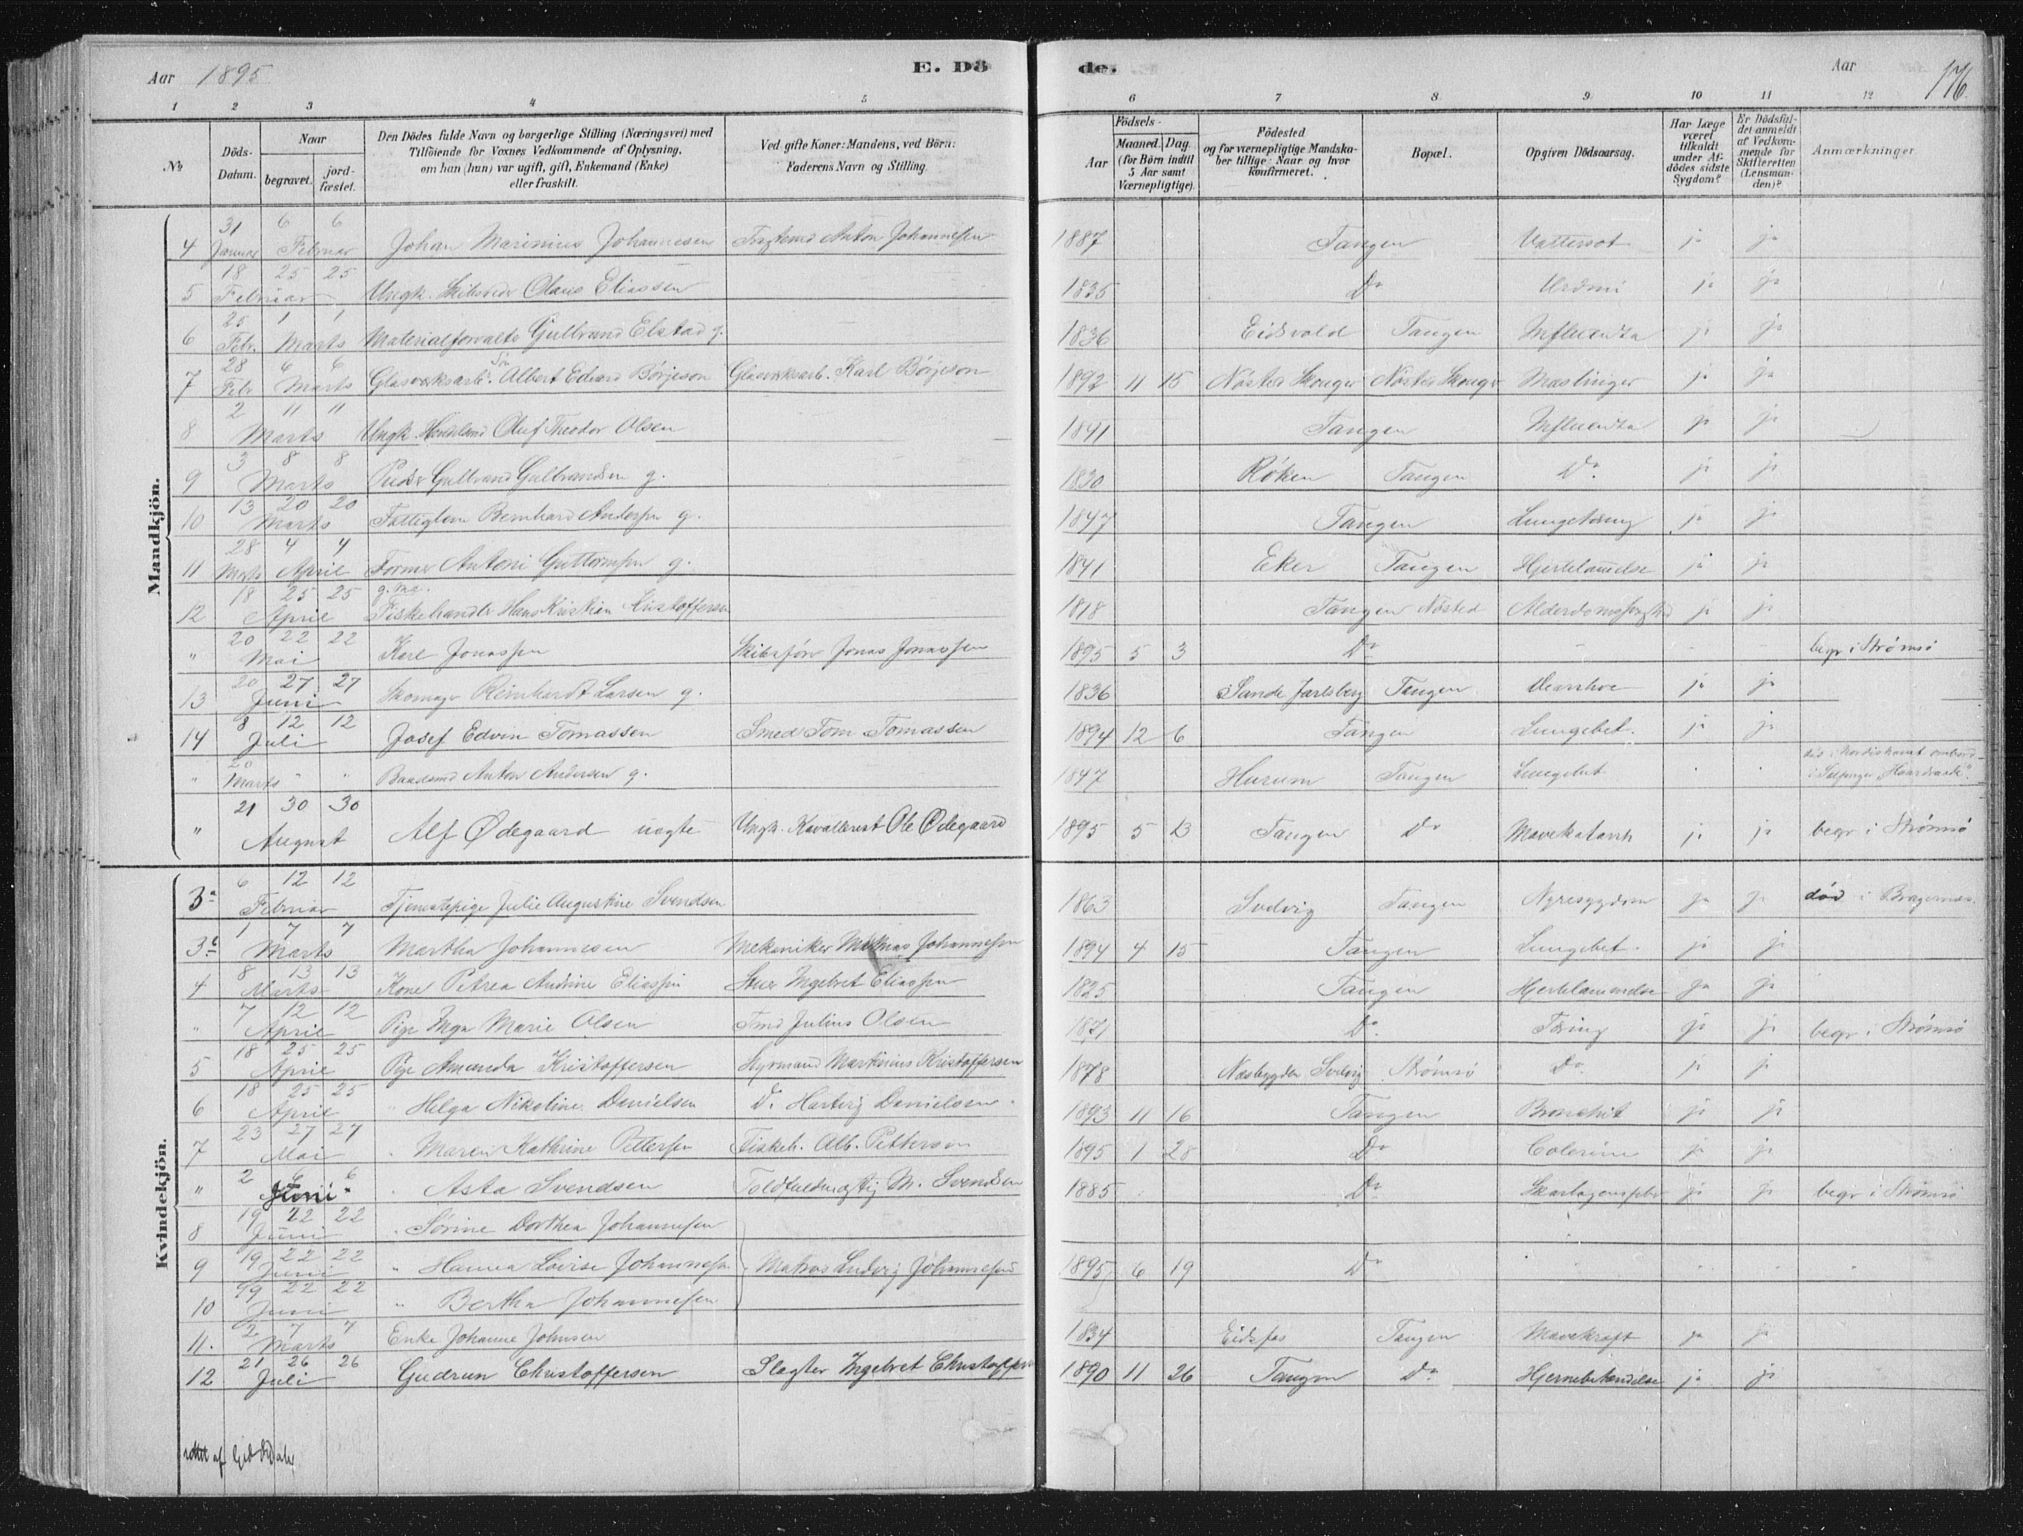 Aar 1895 E. Dö de. Aar 176.
1 2 3 4 5 6 7 8 9 10 11 12
No Döds-Datum. Naar begravet. jord-fæstet. Den Dödes fulde Navn og borgerlige Stilling (Næringsvei) med Tilföiende for Voxnes Vedkommende af Oplysning, om han (hun) var ugift, gift, Enkemand (Enke) eller fraskilt. Ved gifte Koner: Mandens, ved Börn: Faderens Navn og Stilling. Födsels- Aar Maaned. Dag. (for Börn indtil 5 Aar samt Værnepligtige). Födested og for værnepligtige Mandskaber tillige: Naar og hvor konfirmeret. Bopæl. Opgiven Dödsaarsag. Har Læge været tilkaldt under Afdödes sidste Sygdom? Er Dödsfaldet anmeldt af Vedkommende for Skifteretten (Lensmanden)? Anmærkninger.
Mandkjön.
4 31 Januar 6 6 Februar Johan Marinius Johannesen Anton Johannessen 1887 Tangen Vattersot ja ja
5 18 25 25 Februar Ungk. Olaus Eliassen 1835 Do ja ja
6 25 Febr. 1 1 Marts Materialforvalter Gulbrand Elstad g. 1836 Eidsvold Tangen Influenza ja ja
7 28 Febr 6 6 Marts Glasværksarb. Sn Albert Edvard Börjeson Glasværksarb. Karl Börjeson 1892 11 15 Nøsted Skouger Nøsted Skouger Mæslinger ja ja
8 2 11 11 Marts Ungk. Oluf Theodor Olsen 1841 Tangen Influenza ja ja
9 3 8 8 Marts Gulbrand Gulbrandsen g. 1820 Røken Tangen Do ja ja
10 13 20 20 Marts Fattiglem Bernhard Andersen g. 1847 Tangen Lungetæring ja ja
11 28 Marts 4 4 April Former Antoni Guttormsen g. 1841 Eker Tangen Hjertelammelse ja ja
12 18 25 25 April Fiskehandler Hans Kristian Kristoffersen 1818 Tangen Nøsted ja ja
" 20 22 22 Mai Karl Jonassen Skibsfører Jonas Jonassen 1895 5 3 Do - - - begr i Strømsø
13 20 27 27 Juni Skomager Reinhardt Larsen g. 1836 Sande Jarlsberg Tangen ja ja
14 8 12 12 Juli Josef Edvin Tomassen Smed Tom Tomassen 1894 12 6 Tangen Lungebet. ja ja
" 20 Marts " " Baadsmd Anton Andersen g. 1847 Hurum Tangen Lungebet død i Nordishavet ombord i Sælfanger "Haardraade".
" 21 30 30 August Alf Ødegaard uægte Ungk. Kavallerist Ole Ødegaard 1895 5 13 Tangen Do Mavekatarrh ja ja begr i Strømsø
Kvindekjön.
3a 6 12 12 Februar Tjenestepige Julie Augustine Svendsen 1863 Svelvig Tangen Nyresygdom ja ja død i Bragernæs
3b 1 7 7 Marts Martha Johannesen Mekaniker Johannessen 1894 4 15 Tangen Lungebet. ja ja
4 8 13 13 Marts Kone Petrea Andrine Eliassen Ingebret Eliassen 1825 Tangen Hjertelammelse ja ja
" 7 12 12 April Pige Inga Marie Olsen Julius Olsen 1871 Do Tæring ja ja begr i Strømsø
5 18 25 25 April Pige Amanda Kristoffersen Styrmand Martinius Kristoffersen 1878 Nesbygden Svelvig Strømsø Do ja ja
6 18 25 25 April " Helga Nikoline Danielsen Do Hartvig Danielsen 1893 11 16 Tangen Bronchit ja ja
7 23 27 27 Mai " Maren Kathrine Pettersen Fiskeh. Alb. Petterson 1895 1 28 Do Colerine ja ja
" 2 6 6 Juni " Asta Svendsen Toldfuldmægtig M. Svendsen 1885 Do Skarlagensfeber ja ja begr i Strømsø
8 19 22 22 Juni " Sørine Dorthea Johannesen
9 19 22 22 Juni " Hanna Lovise Johannesen Matros Ludvig Johannesen 1895 6 19 Do
10 19 22 22 Juni " Bertha Johannesen
11. 2 7 7 Marts Enke Johanne Johnsen 1834 Eidsfos Tangen Mavekræft ja ja
12 21 26 26 Juli Gudrun Christoffersen Slagter Ingebret Christoffersen 1890 11 26 Tangen Do Hjernebetændelse ja ja
rettet af